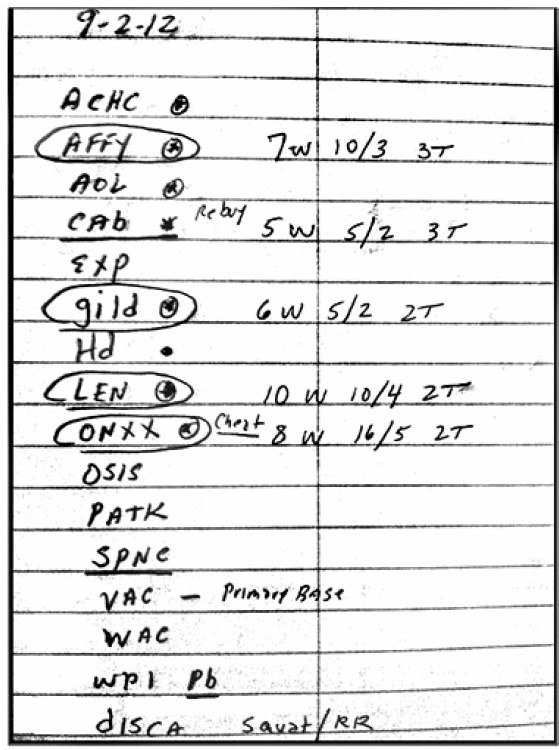 9-2-12
ACHC
AFFY 7w 10/3 3T
AOL
CAb Rebuy 5w 5/2 3T
EXP
gild 6w 5/2 2T
Hd
LEN 10w 10/4 2T
ONXX Cheat 8w 16/5 2T
OSIS
PATK
SPNC
VAC - Primary BASE
WAC
WPI Pb
dISCA Squat/RR